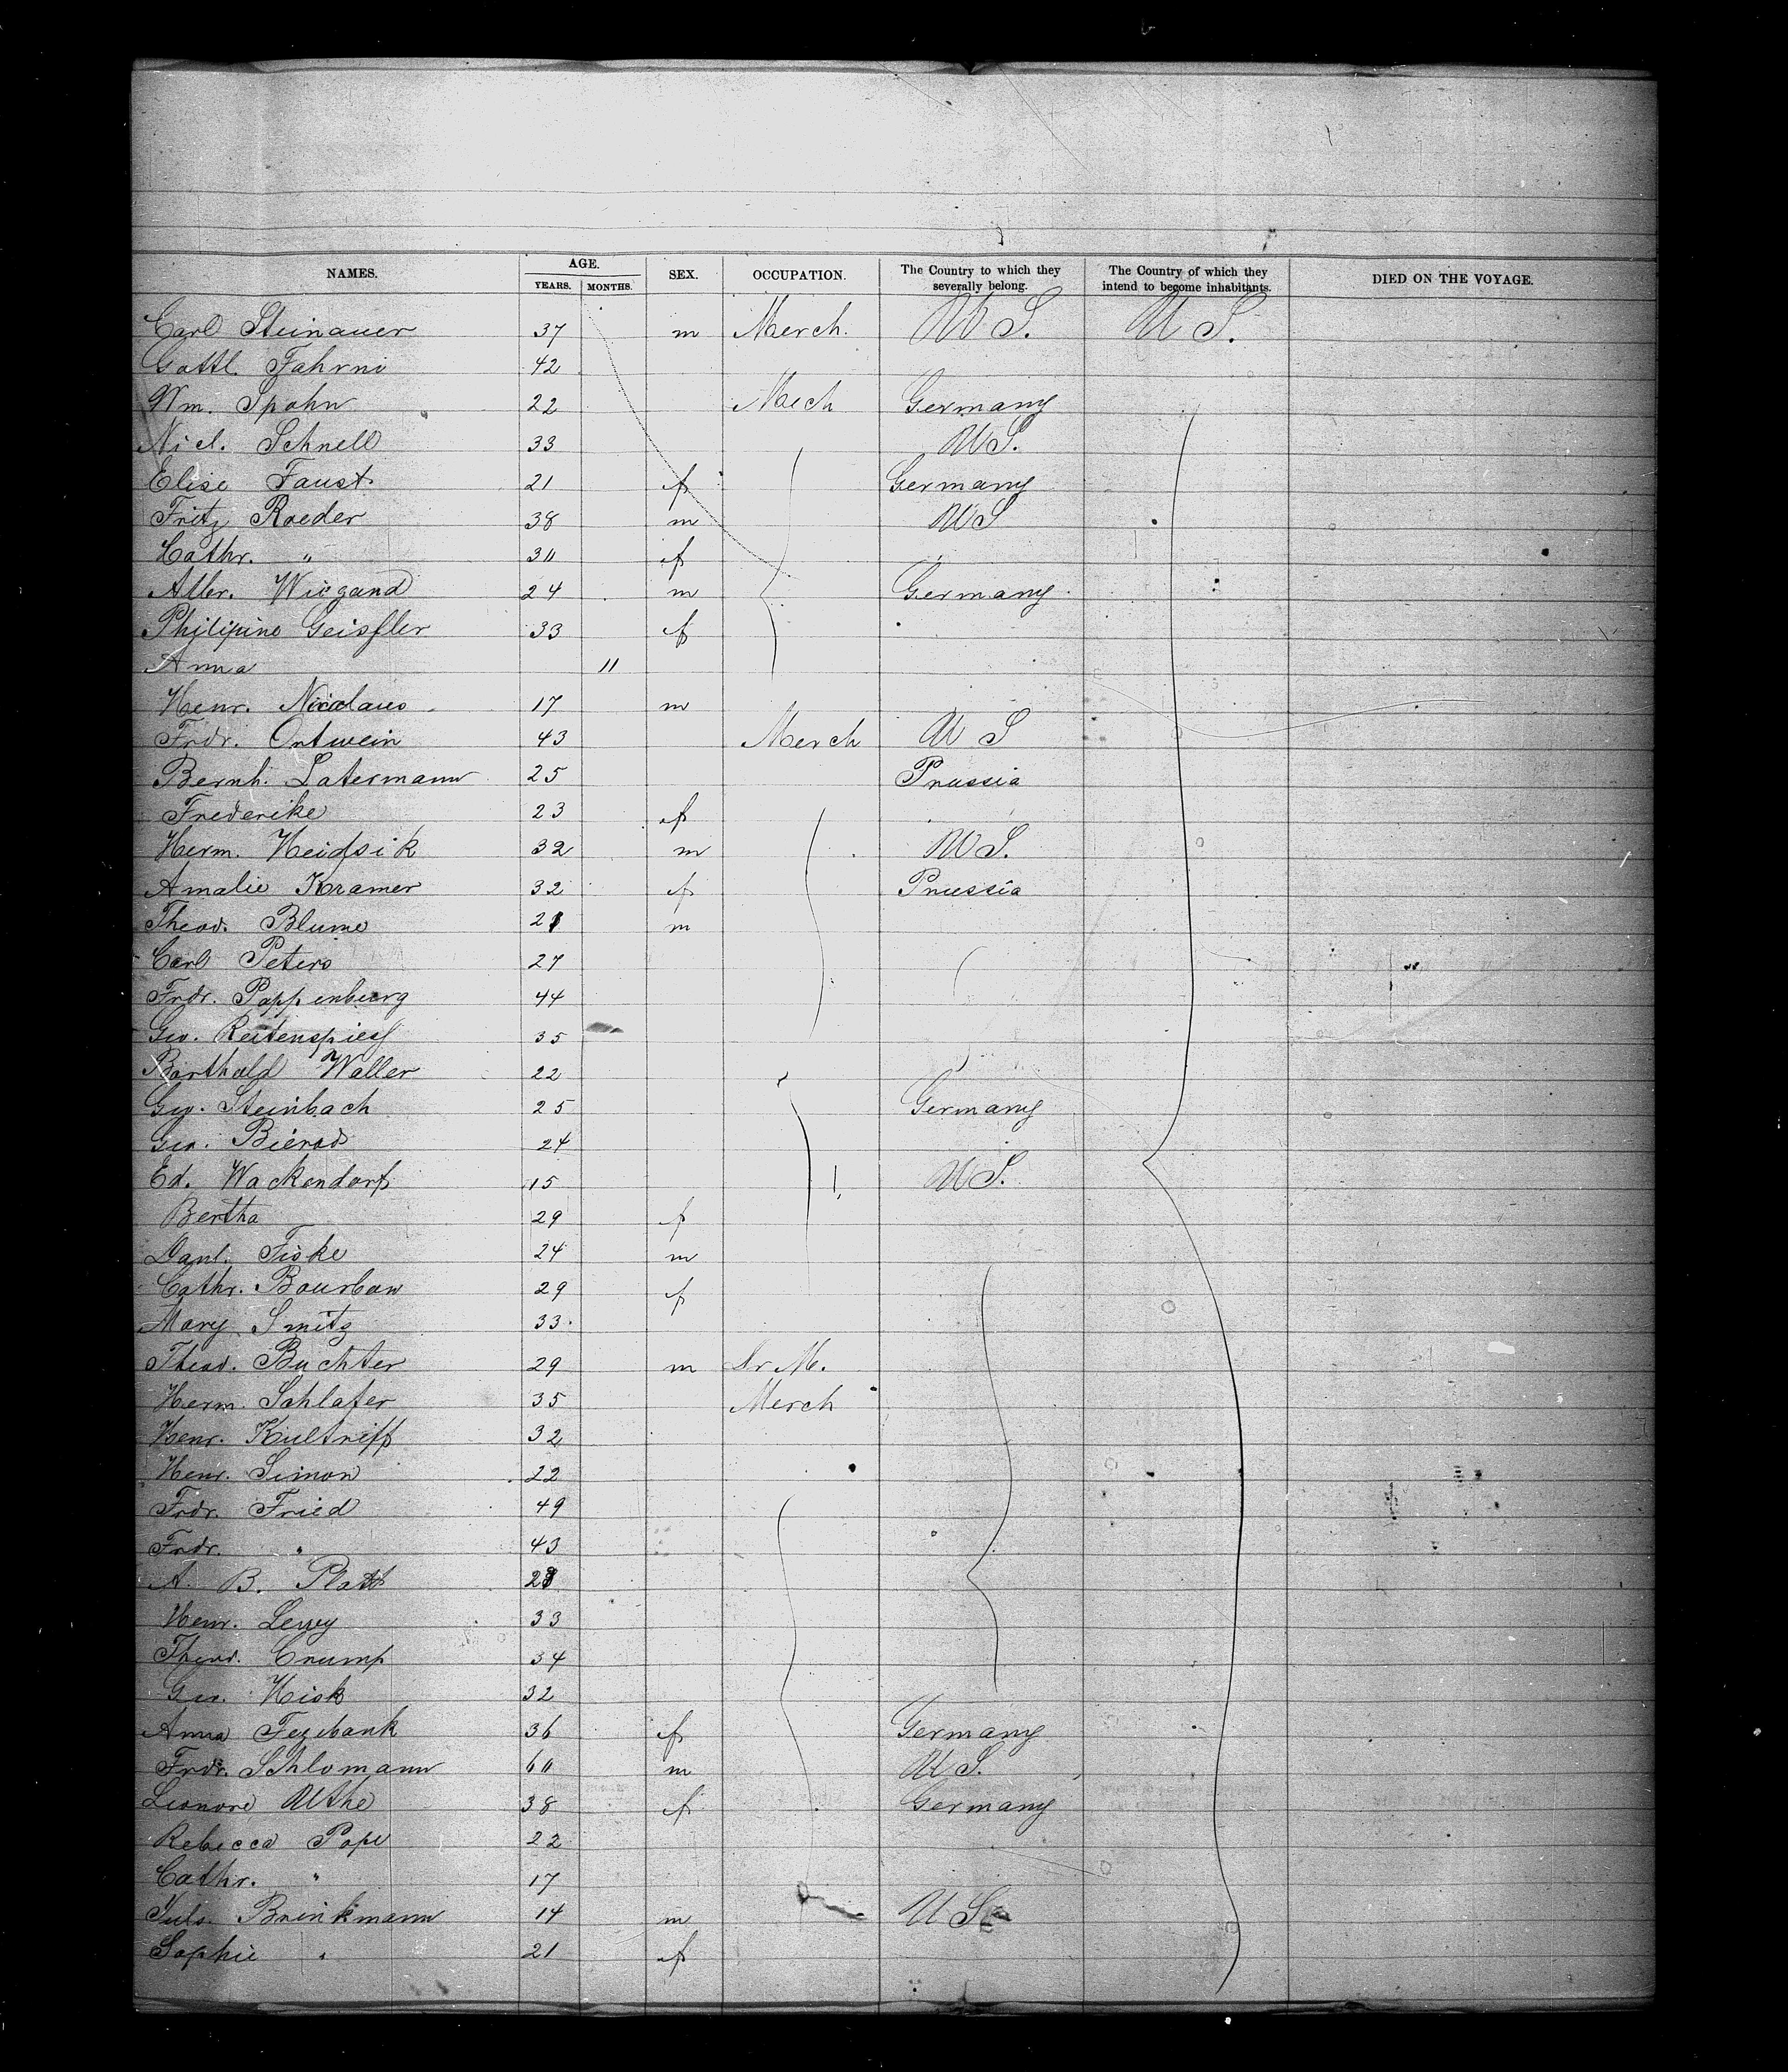 NAMES. AGE. YEARS. MONTHS. SEX. OCCUPATION. The Country to which they severally belong. The Country of which they intend to become inhabitants. DIED ON THE VOYAGE.
Carl Steinauer 37 m Merch. U S. U S.
Gottl. Fahrni 42
Wm. Spohn 22 Mech Germany
Nicl. Schnell 33 U S.
Elise Faust 21 f Germany
Fritz Roeder 38 m U S
Cathr. " 30 f
Albr. Wiegand 24 m Germany
Philipine Geissler 33 f
Anna 11
Henr. Nicolaus 17 m
Frdr. Ortwein 43 Merch U S
Bernh. Latermann 25 Prussia
Frederike 23 f
Herm. Heidsik 32 m U S.
Amalie Kramer 32 f Prussia
Theod. Blume 21 m
Carl Peters 27
Frdr. Pappenburg 44
Geo. Reitenspiess 35
Barthold Waller 22
Geo. Steinbach 25 Germany
Geo. Bierod 24
Ed. Wackendorf 15 U S.
Bertha 29 f
Danl. Fiske 24 m
Cathr. Bourbon 29 f
Mary Smitz 33
Theod. Buchter 29 m Dr M.
Herm. Schlafer 35 Merch
Henr. Kultriff 32
Henr. Simon 22
Frdr. Fried 49
Frdr. " 43
A. B. Platt
Henr. Levey 33
Theod. Crump 34
Geo. Hisk 32
Anna Fezebank 36 f Germany
Frdr. Schlomann 60 m U S.
Leonore Uthe 38 f Germany
Rebecca Pope 22
Cathr. " 17
Juls. Brinkmann 14 m U S
Sophie " 21 f